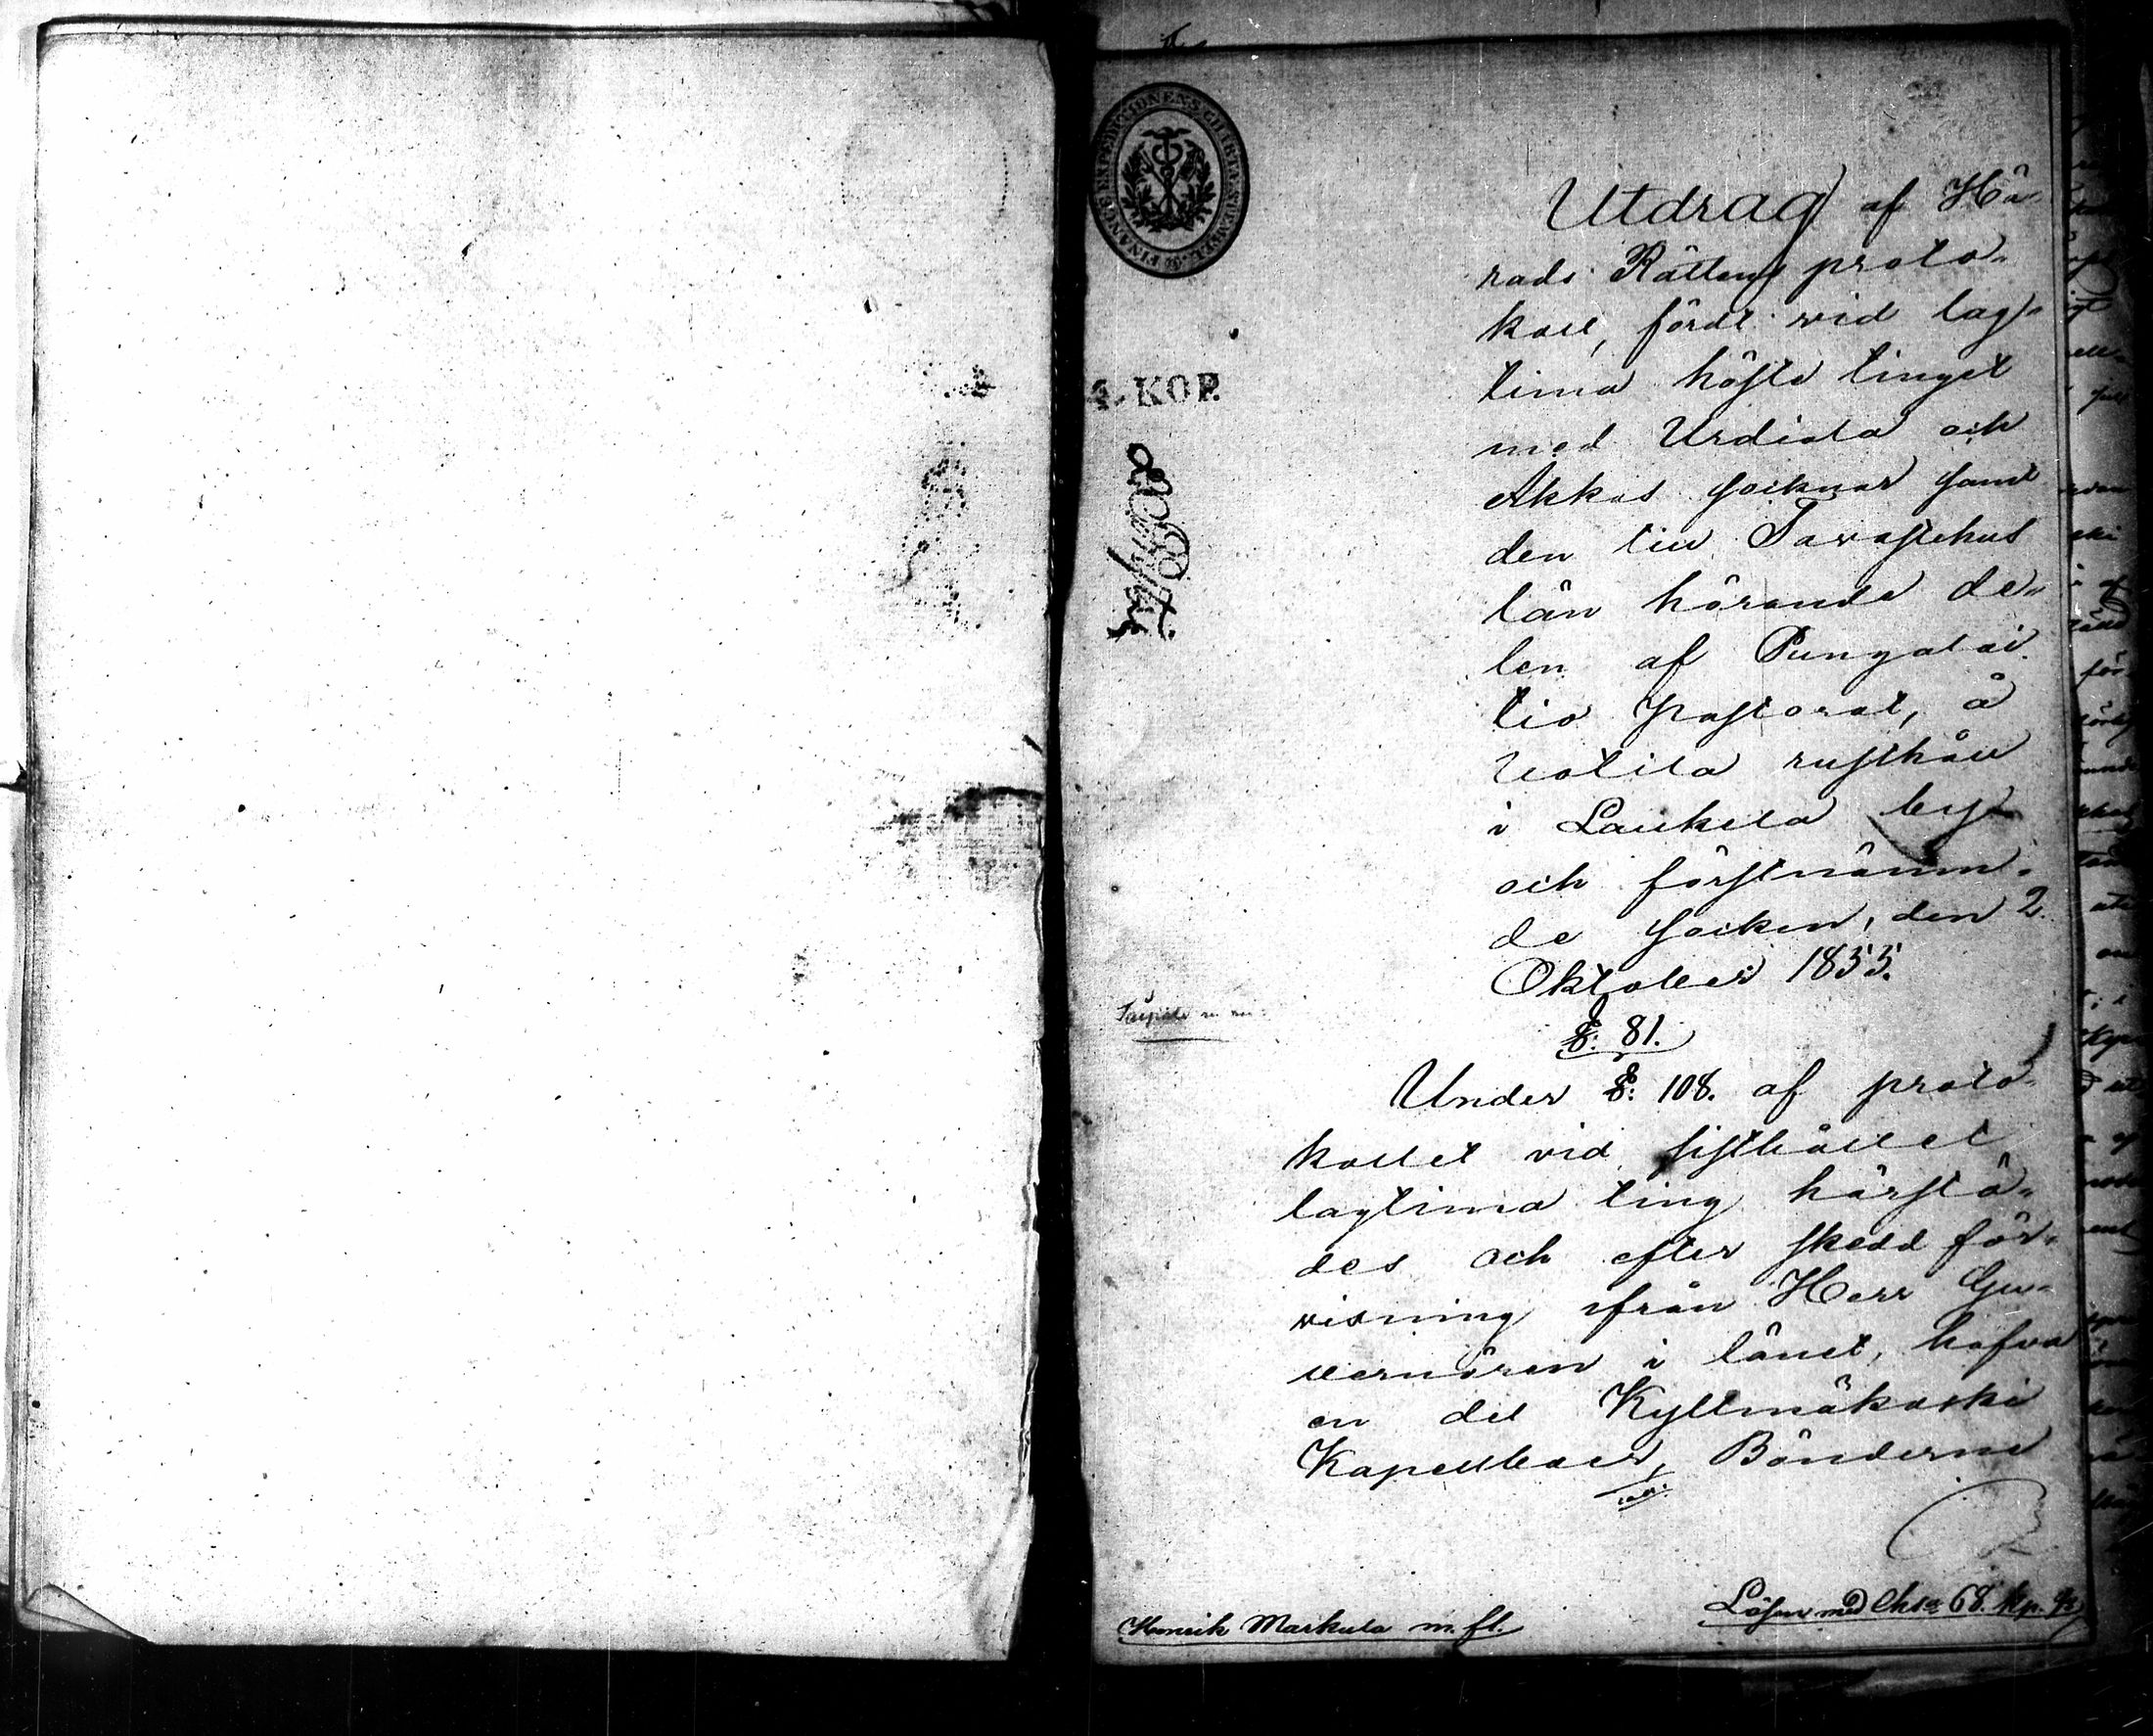 FINANCE EXPEDITIONENS CHARTÆ STÄMPEL
4. KOP.
Utdrag af Hä-
rads Rättens proto-
koll, fördt vid lag-
tima höste tinget
med Urdiala och
Akkas socknar samt
den till Tavastehus
län hörande de-
len af Pungalai-
tio pastorat, å
Uotila rusthåll
i Laukela by
och förstnämn-
de socken, den 2
Oktober 1855.
§: 81.
Under §: 108. af proto-
kollet vid sisthållet
lagtima ting härstä-
des och efter skedd för-
visning ifrån Herr Gu-
vernören i länet, hafva
en del Kyllmäkoski
Kapellboer, Bönderne
Henrik Markula m. fl.
Lösen med Charta 68. kop.